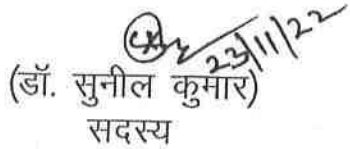 23/11/22
(डॉ. सुनील कुमार)
सदस्य